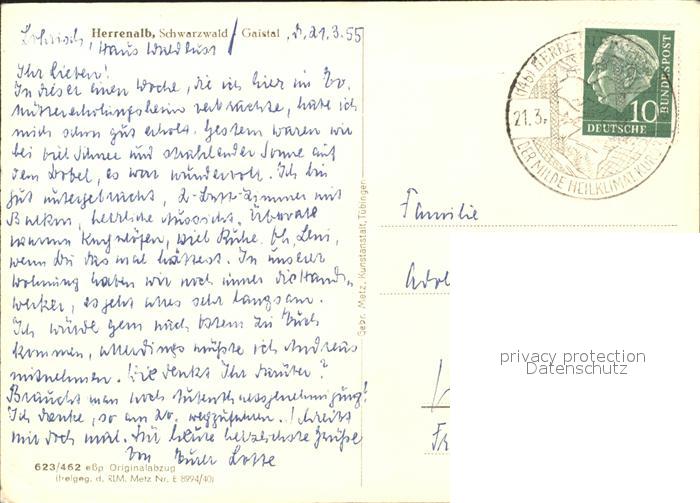 Herrenalb, Schwarzwald / Gaistal, d. 21.3.55
Haus Waldlust
Ihr Lieben!
In dieser einen Woche, die ich hier im Ev.
Müttererholungsheim verbrachte, habe ich
mich schon gut erholt. Gestern waren wir
bei viel Schnee und strahlender Sonne auf
dem Dobel, es war wundervoll. Ich bin
gut untergebracht, 2-Bett-Zimmer mit
Balkon, herrliche Aussicht. Überall
warme Kachelöfen, viel Ruhe. Leni,
wenn Du das mal hättest. In unserer
Wohnung haben wir noch immer die Hand-
werker, es geht alles sehr langsam.
Ich würde gern nach Ostern zu Euch
kommen, allerdings müßte ich Andreas
mitnehmen. Wie denkt Ihr darüber?
Braucht man noch Aufenthaltsgenehmigung?
Ich denke, so am 20. wegzufahren. Schreibt
mir doch mal. Für heute herzlichste Grüße
von Eurer Lotte
623/462 eßp Originalabzug
(freigeg. d. RLM. Metz Nr. E 8994/40)
Gebr. Metz, Kunstanstalt, Tübingen
(14b) HERRENALB
21.3.
DER MILDE HEILKLIMAT. KUR
10
DEUTSCHE
BUNDESPOST
Familie
Adol
Fr
privacy protection
Datenschutz